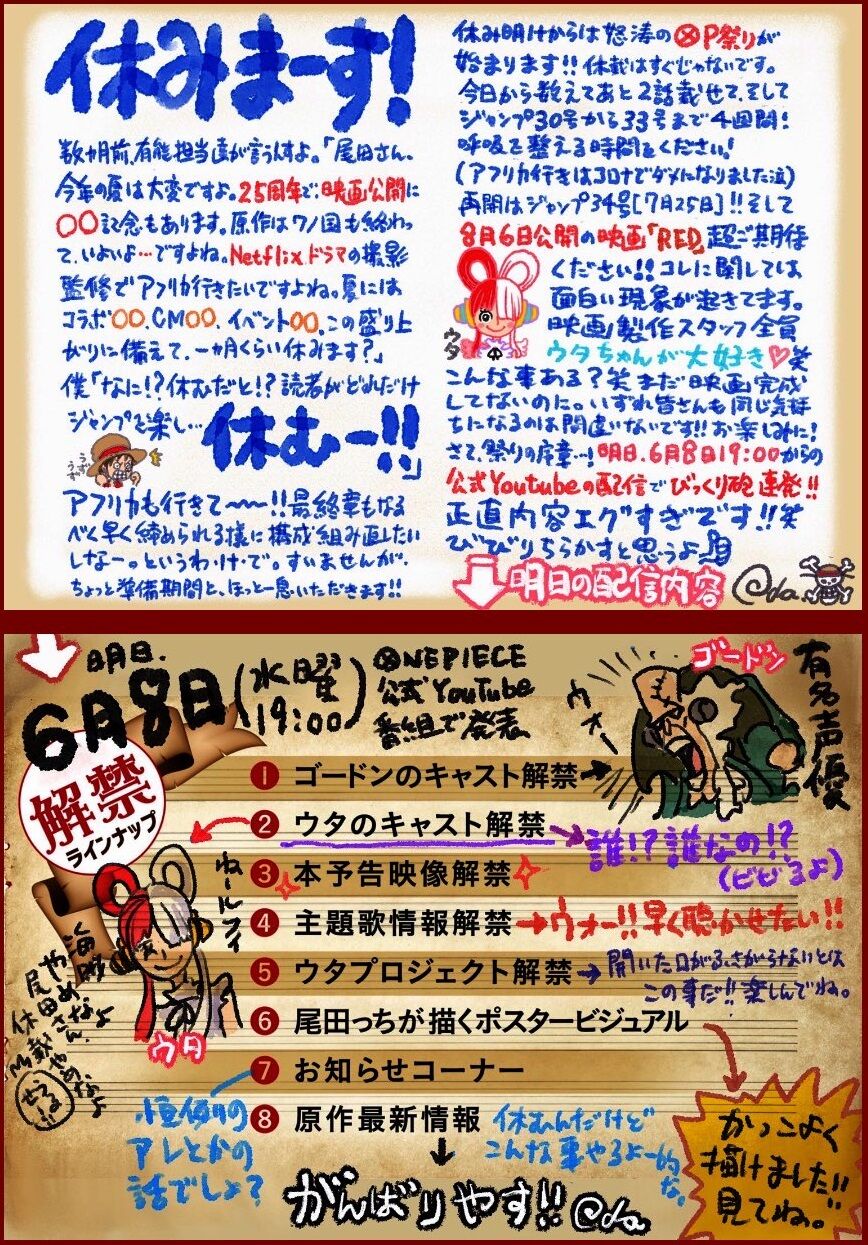 休みまーす!
数カ月前、有能担当達が言うんすよ。「尾田さん、
今年の夏は大変ですよ。25周年で、映画公開に
〇〇記念もあります。原作はワノ国も終わっ
て、いよいよ…ですよね。Netflixドラマの撮影
監修でアフリカ行きたいですよね。夏には
コラボ〇〇、CM〇〇、イベント〇〇、この盛り上
がりに備えて、一ヵ月くらい休みます?」
僕「なに!?休むだと!?読者がどれだけ
ジャンプを楽し…休むー!!」
うず
うず
アフリカも行きて〜〜!!最終章もなる
べく早く締められる様に構成組み直したい
しなー。というわ・け・で。すいませんが、
ちょっと準備期間と、ほっと一息いただきます!!
休み明けからは怒涛のOP祭りが
始まります!!休載はすぐじゃないです。
今日から数えてあと2話載せて、そして
ジャンプ30号から33号まで4回間!
呼吸を整える時間をください!
(アフリカ行きはコロナでダメになりました泣)
再開はジャンプ34号[7月25日]!!そして
8月6日公開の映画「RED」超ご期待
ください!!コレに関しては
面白い現象が起きてます。
映画製作スタッフ全員
ウタちゃんが大好き♡笑
ウタ
こんな事ある?笑 まだ映画完成
してないのに。いずれ皆さんも同じ気持
ちになるのは間違いないです!!お楽しみに!
さて、祭りの序章…!明日、6月8日19:00からの
公式Youtubeの配信でびっくり砲連発!!
正直内容エグすぎです!!笑
びびりちらかすと思うよ
明日の配信内容
Oda.
明日、
6月8日(水曜19:00)
ONEPIECE
公式YouTube
番組で発表
解禁
ラインナップ
ゴードン
有名声優
ウォー
1 ゴードンのキャスト解禁
2 ウタのキャスト解禁
誰!?誰なの!?
(ビビるよ)
3 本予告映像解禁
4 主題歌情報解禁→ウォー!!早く聴かせたい!!
5 ウタプロジェクト解禁→開いた口がふさがらないとは
この事だ!!楽しんでね。
6 尾田っちが描くポスタービジュアル
かっこよく
描けました!!
見てね。
7 お知らせコーナー
恒例の
アレとかの
話でしょ?
8 原作最新情報
休むんだけど
こんな事やるよー的な。
ねールフィ
海賊
やめなよ
尾田さん、
休載やめなよ
せろよ!!
ウタ
がんばりやす!!Oda